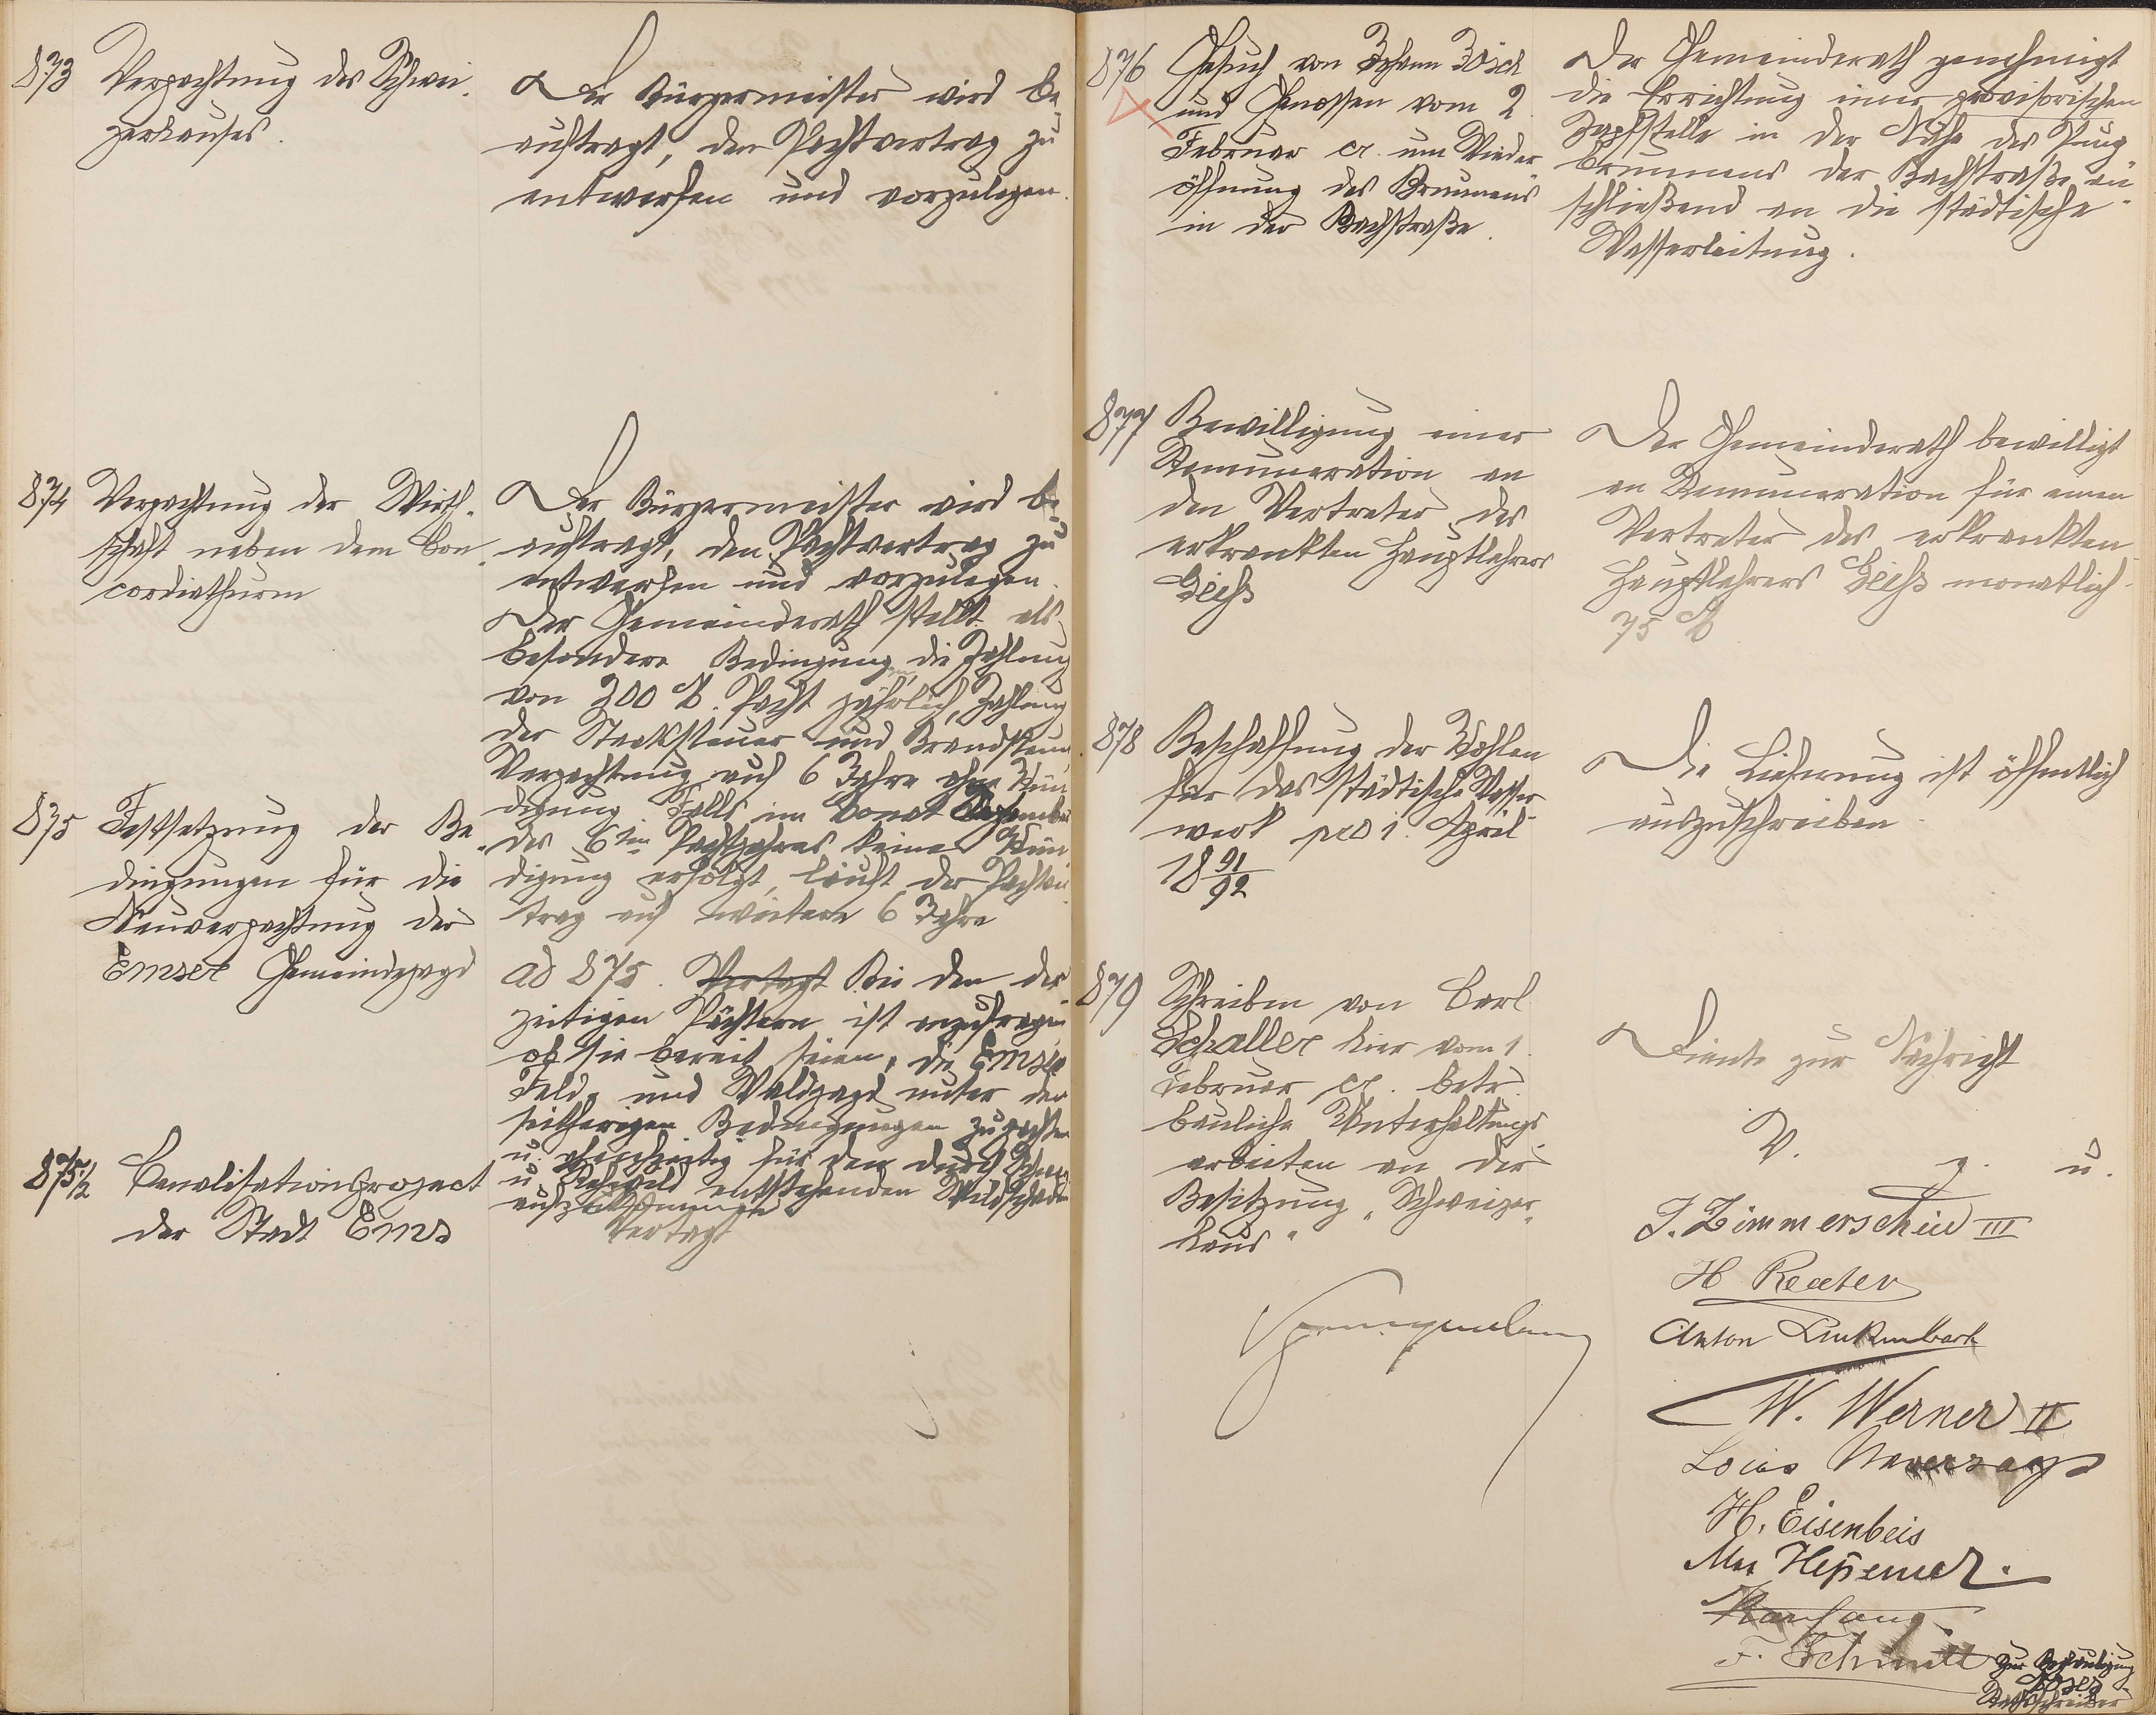 873
Verpachtung des Schwei-
zerhauses.
Der Bürgermeister wird be-
auftragt, den Pachtvertrag zu
entwerfen und vorzulegen.
874
Verpachtung der Wirth-
schaft neben dem Con-
cordiathurm
Der Bürgermeister wird be-
auftragt, den Pachtvertrag zu
entwerfen und vorzulegen.
Der Gemeinderath stellt als
besondere Bedingung die Zahlung
von 300 M. Pacht jährlich, Zahlung
der Staatssteuer und Brandsteuer,
Verpachtung auf 6 Jahre ohne Kün-
digung Falls im Monat Dezember
des 6ten Pachtjahres keine Kün-
digung erfolgt, läuft der Pachtver-
trag auf weitere 6 Jahre
875
Festsetzung der Be-
dingungen für die
Neuverpachtung der
Emser Gemeindejagd
ad 875. Vertagt Bei den der-
zeitigen Pächtern ist anzufragen
ob sie bereit seien, die Emser
Feld- und Waldjagd unter den
seitherigen Bedingungen zu pachten
u. gleichzeitig für den durch
u Rehwild entstehenden Wildschaden
aufzukommen
875 1/2
Canalisationsproject
der Stadt Ems
Vertagt
876
Gesuch von Johann
und Genossen vom 2.
Februar cr. um Wieder
öffnung des Brunnens
in der Bachstraße.
Der Gemeinderath genehmigt
die Errichtung einer provisorischen
Zapfstelle in der Nähe des Pump
brunnens der Bachstraße an-
schließend an die städtische
Wasserleitung.
877
Bewilligung einer
Remuneration an
den Vertreter des
erkrankten Hauptlehrers
Geiß
Der Gemeinderath bewilligt
an Remuneration für einen
Vertreter des erkrankten
Hauptlehrers Geiß monatlich
75 M
878
Beschaffung der Kohlen
für das städtische Wasser
werk pro 1. April
18 91/92
Die Lieferung ist öffentlich
auszuschreiben
879
Schreiben von Carl
Schaller hier vom 1.
Februar cr. betr.
bauliche Unterhaltungs
arbeiten an der
Besitzung "Schweizer-
haus"
Diente zur Nachricht
V. g. u.
J. Zimmerschied III
H Reuter
Anton Linkenbach
W. Werner II
Louis Unverzagt
H. Eisenbeis
F. Schmitt
Zur Beglaubigung
Rathsschreiber